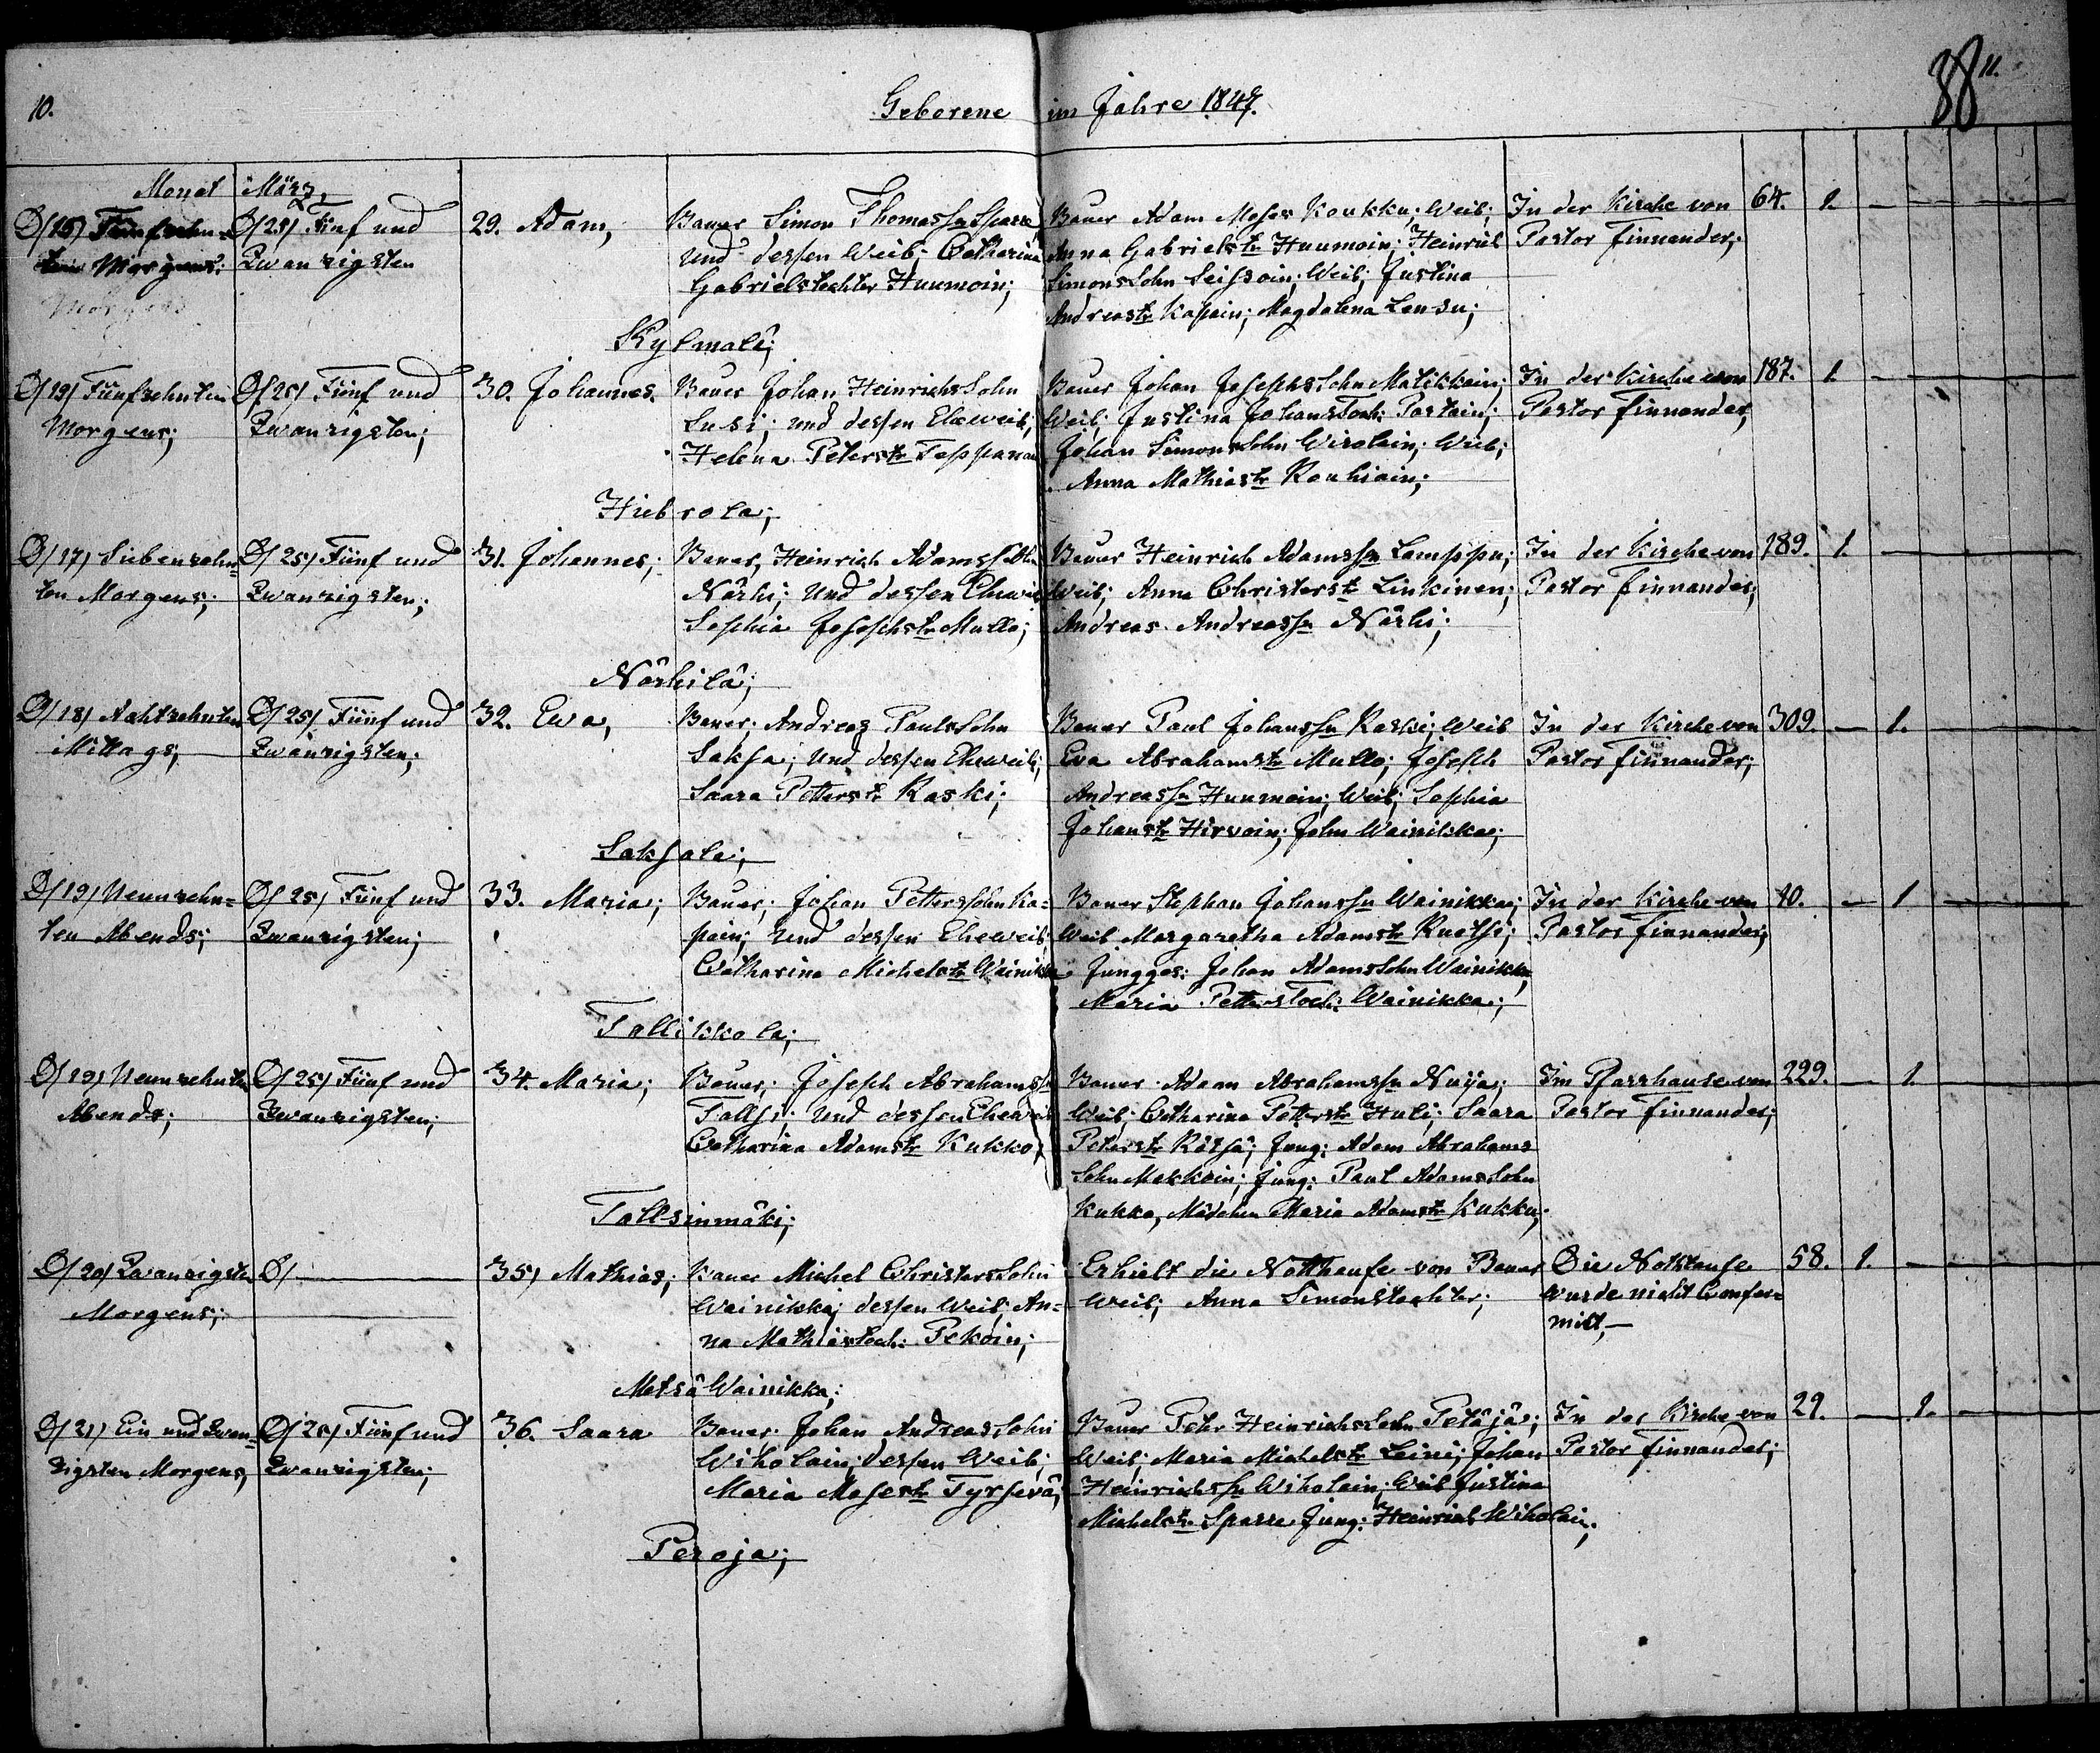 10.
Geborene im Jahre 1847.
38
11.
Monat März
D/15) Fünfzehn-
ten Morgens;
Morgens
D/25) Fünf und
Zwanzigsten
29. Adam,
Bauer Simon Thomassn Sparre
und dessen Weib; Catharina
Gabrielstochter Huumoin;
Bauer Adam Moses Koukku; Weib;
Anna Gabrielstr Huumoin; Heinrich
Simons Sohn Seissoin; Weib; Justina
Andreastr Kapain; Magdalena Lensu;
In der Kirche von
Pastor Finnander;
64. 1. —
Kylmälä;
D/15) Fünfzehnten
Morgens;
D/25) Fünf und
Zwanzigsten;
30. Johannes.
Bauer Johan Heinrichs Sohn
Susi; und dessen Eheweib;
Helena Peterstr Teppanan
Bauer Johan Josephs Sohn Matikkain;
Weib; Justina Johans Toch: Partain;
Johan Simons Sohn Wirolain; Weib;
Anna Mathiastr Rouhiain;
In der Kirche von
Pastor Finnander,
187. 1. —
Hietrola;
D/17) Siebenzehn-
ten Morgens;
D/25) Fünf und
Zwanzigsten;
31. Johannes;
Bauer, Heinrich Adams Sohn
Närhi; und dessen Eheweib
Sophia Josephstr Mullo;
Bauer Heinrich Adamssn Lamppu;
Weib; Anna Christerstr Linkinen;
Andreas Andreassn Närhi;
In der Kirche von
Pastor Finnander;
189. 1. —
Närhilä;
D/18) Achtzehnten
Mittags;
D/25) Fünf und
Zwanzigsten;
32. Ewa,
Bauer; Andreas Pauls Sohn
Saksa; und dessen Eheweib;
Saara Petterstr Raski;
Bauer Paul Johanssn Raski; Weib
Eva Abrahamstr Mullo; Joseph
Andreassn Huumoin; Weib; Sophia
Johanstr Hirvoin; John Wainikka;
In der Kirche von
Pastor Finnander;
309. — 1. —
Saksala;
D/19) Neunzehn-
ten Abends;
D/25) Fünf und
Zwanzigsten;
33. Maria;
Bauer; Johan Petters Sohn Ka-
pain; und dessen Eheweib;
Catharina Michelstr Wainikka
Bauer Stephan Johanssn Wainikka;
Weib Margaretha Adamstr Ruothi;
Jungges: Johan Adams Sohn Wainikka,
Maria Petters Toch: Wainikka;
In der Kirche von
Pastor Finnander;
40. — 1 —
Tallikkola;
D/19) Neunzehnten
Abends;
D/25) Fünf und
Zwanzigsten;
34. Maria;
Bauer; Joseph Abrahamssn
Tallsi; und dessen Eheweib
Catharina Adamstr Kukko;
Bauer Adam Abrahamssn Nuija;
Weib; Catharina Petterstr Huli; Saara
Peterstr Rötsä; Jung: Adam Abrahams
Sohn Makkoin; Jung: Paul Adams Sohn
Kukko, Mädchen Maria Adamstr Kukko;
Im Pfarrhause von
Pastor Finnander;
229. — 1. —
Tallsinmäki;
D/20) Zwanzigsten
Morgens;
D/ —
35) Mathias;
Bauer Michel Christers Sohn
Wainikka; dessen Weib; An-
na Mathiastoch: Pekoin;
Erhielt die Nothtaufe von Bauer
Weib; Anna Simonstochter;
Die Nothtaufe
wurde nicht Confer-
mirt, —
58. 1. —
Metsä Wainikka;
D/21) Ein und Zwan-
zigsten Morgens,
D/25) Fünf und
Zwanzigsten;
36. Saara
Bauer Johan Andreas Sohn
Wiholain; dessen Weib;
Maria Mosestr Tyrsevä;
Bauer Peter Heinrichs Sohn Petäjä;
Weib; Maria Michelstr Leini; Johan
Heinrichssn Wiholain; Weib Justina
Michelstr Sparre Jung: Heinrich Wiholain;
In der Kirche von
Pastor Finnander;
29. — 1. —
Peroja;